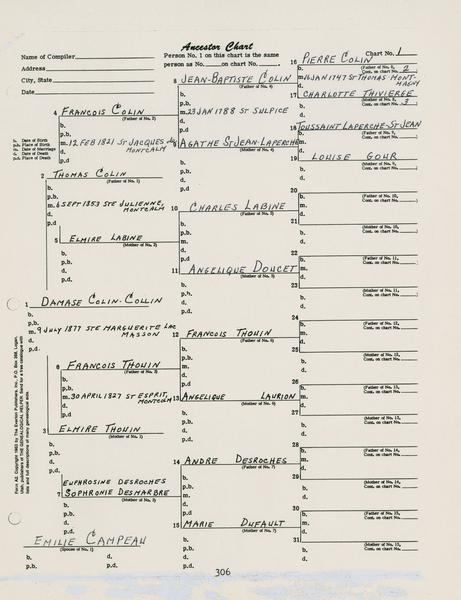 Ancestor Chart
Name of Compiler
Person No. 1 on this chart is the same
person as No. on chart No. .
Chart No. 1
Address
City, State
Date
16 PIERRE COLIN
(Father of No. 8,
Cont. on chart No. 2
m. 16 JAN 1747 ST THOMAS-MONT-
MAGNY
8 JEAN-BAPTISTE COLIN
(Father of No. 4)
17 CHARLOTTE THIVIERGE
(Mother of No. 8,
Cont. on chart No. 3
4 FRANCOIS COLIN
(Father of No. 2)
b.
p.b.
m. 23 JAN 1788 ST SULPICE
d.
p.d.
18 TOUSSAINT LAPERCHE-ST-JEAN
b. Date of Birth
p.b. Place of Birth
m. Date of Marriage
d. Date of Death
p.d. Place of Death
b.
p.b.
m. 12 FEB 1821 ST JACQUES
MONTCALM
d.
p.d.
9 AGATHE ST-JEAN-LAPERCHE
(Mother of No. 4)
19 LOUISE GOUR
(Mother of No. 9,
Cont. on chart No.
2 THOMAS COLIN
(Father of No. 1)
20
(Father of No. 10,
Cont. on chart No.
b.
p.b.
m. 6 SEPT 1853 STE JULIENNE,
MONTCALM
d.
p.d.
10 CHARLES LABINE
(Father of No. 5)
21
(Mother of No. 10,
Cont. on chart No.
5 ELMIRE LABINE
(Mother of No. 2)
22
(Father of No. 11,
Cont. on chart No.
11 ANGELIQUE DOUCET
(Mother of No. 5)
23
(Mother of No. 11,
Cont. on chart No.
1 DAMASE COLIN-COLLIN
b.
p.b.
m. 9 JULY 1877 STE MARGUERITE LAC
MASSON
d.
p.d.
24
(Father of No. 12,
Cont. on chart No.
12 FRANCOIS THOUIN
(Father of No. 6)
25
(Mother of No. 12,
Cont. on chart No.
6 FRANCOIS THOUIN
(Father of No. 3)
b.
p.b.
m. 30 APRIL 1827 ST ESPRIT,
MONTCALM
d.
p.d.
26
(Father of No. 13,
Cont. on chart No.
13 ANGELIQUE LAURION
(Mother of No. 6)
27
(Mother of No. 13,
Cont. on chart No.
3 ELMIRE THOUIN
(Mother of No. 1)
b.
p.b.
d.
p.d.
28
(Father of No. 14,
Cont. on chart No.
14 ANDRE DESROCHES
(Father of No. 7)
29
(Mother of No. 14,
Cont. on chart No.
EUPHROSINE DESROCHES
7 SOPHRONIE DESMARBRE
(Mother of No. 3)
30
(Father of No. 15,
Cont. on chart No.
15 MARIE DUFAULT
(Mother of No. 7)
31
(Mother of No. 15,
Cont. on chart No.
EMILIE CAMPEAU
(Spouse of No. 1)
b. d.
p.b. p.d.
306